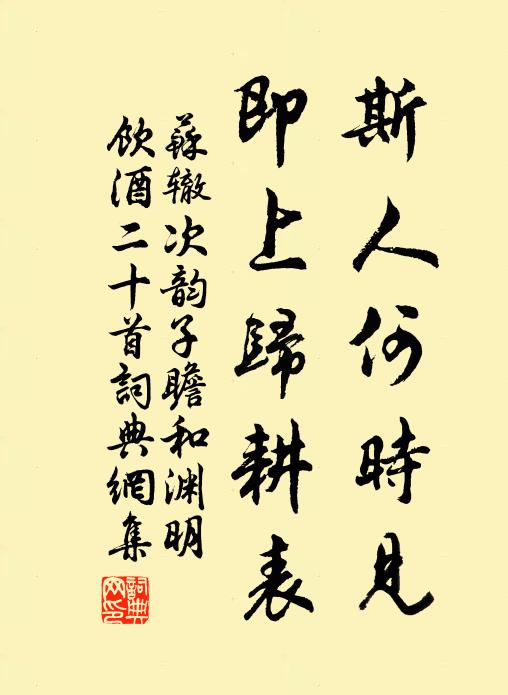 斯人何時見
即上歸耕表
蘇轍次韵子瞻和渊明
飲酒二十首詞典網集
詞典
网印